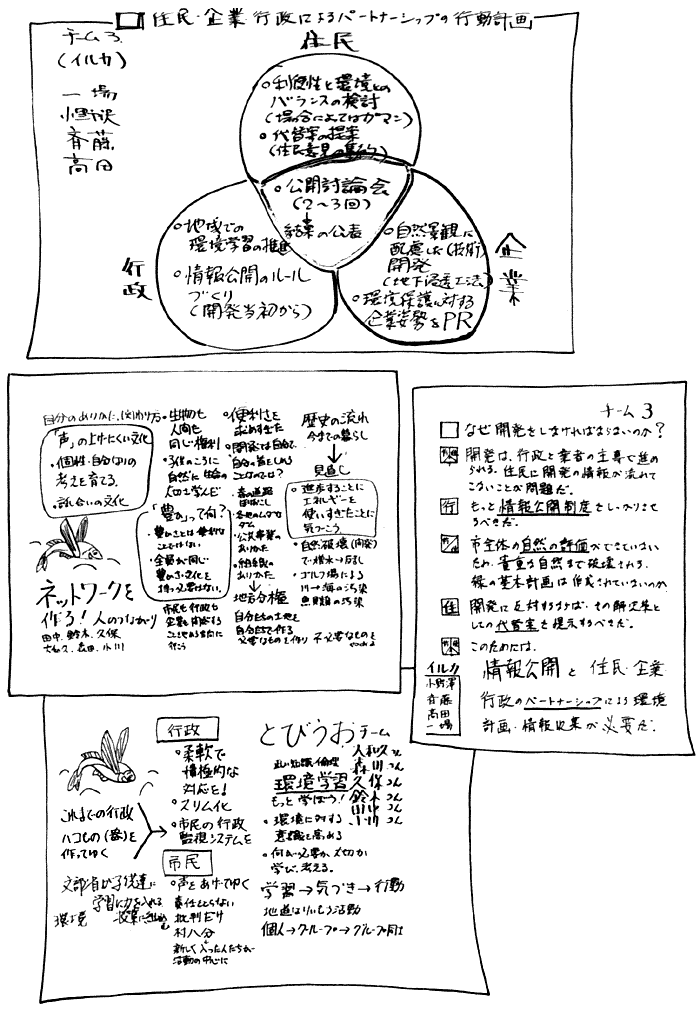 住民・企業・行政によるパートナーシップの行動計画
チーム3.
(イルカ)
一場
小野沢
斉藤
高田
住民
○利便性と環境との
バランスの検討
(場合によってはガマン)
○代替案の提案
(住民意見の集約)
○公開討論会
(2〜3回)
結果の公表
行政
○地域での
環境学習の推進
○情報公開のルール
づくり
(開発当初から)
企業
○自然景観に
配慮した(技術)
開発
(地下浸透工法)
○環境保護に対する
企業姿勢をPR
自分のありかた、(変)わり方
「声」の上げにくい文化
・個性・自分なりの
考えを育てる
・話し合いの文化
ネットワークを
作ろう!人のつながり
田中、鈴木、久保
・生物も
人間も
同じ権利
・子供のころに
自然に生命の
「豊か」って何?
・豊かさとは便利な
ことではない
・全員が同じ
豊かさ・文化を
持つ必要はない。
市民も行政も
企業も
行こう
・便利さを
求めすぎた
・開発は自分で
自分の首をしめる
ことなのでは?
・公共事業の
ありかた
ありかた
→地方分権
自分たちの土地を
自分たちで作る
必要なものを作り 不必要なものを
歴史の流れ
今までの暮らし
見直し
・進歩することに
エネルギーを
使いすぎたことに
気づこう
・自然破壊(開発)
・ゴルフ場による
川→海の汚染
魚貝類の汚染
チーム3
なぜ開発をしなければならないのか?
開発は、行政と業者の主導で進め
られる。住民に開発の情報が流れて
こないことが問題だ。
行 もっと情報公開制度をしっかりさせ
るべきだ。
市全体の自然の評価ができていない
ため、貴重な自然まで破壊される。
緑の基本計画は作成されていないのか
住 開発に反対するならば、その解決策と
しての代替案を提示するべきだ。
このためには、
情報公開と住民・企業
行政のパートナーシップによる環境
計画・情報収集が必要だ。
イルカ
小野澤
斉藤
高田
一場
行政
・柔軟で
積極的な
対応を!
・スリム化
・市民の行政
監視システムを
これまでの行政
ハコもの(器)を
作ってゆく
市民
・声をあげてゆく
責任をとらない
批判だけ
村八分
新しく入った人たちが
活動の中心に
文部省が子供達に
学習に力を入れる
環境
とびうおチーム
森川さん
久保さん
鈴木さん
小川さん
正しい知識・倫理
環境学習
もっと学ぼう!
・環境に対する
意識を高める
・何が必要か、大切か
学び、考える。
学習→気づき→行動
地道な活動
個人→グループ→グループ同士